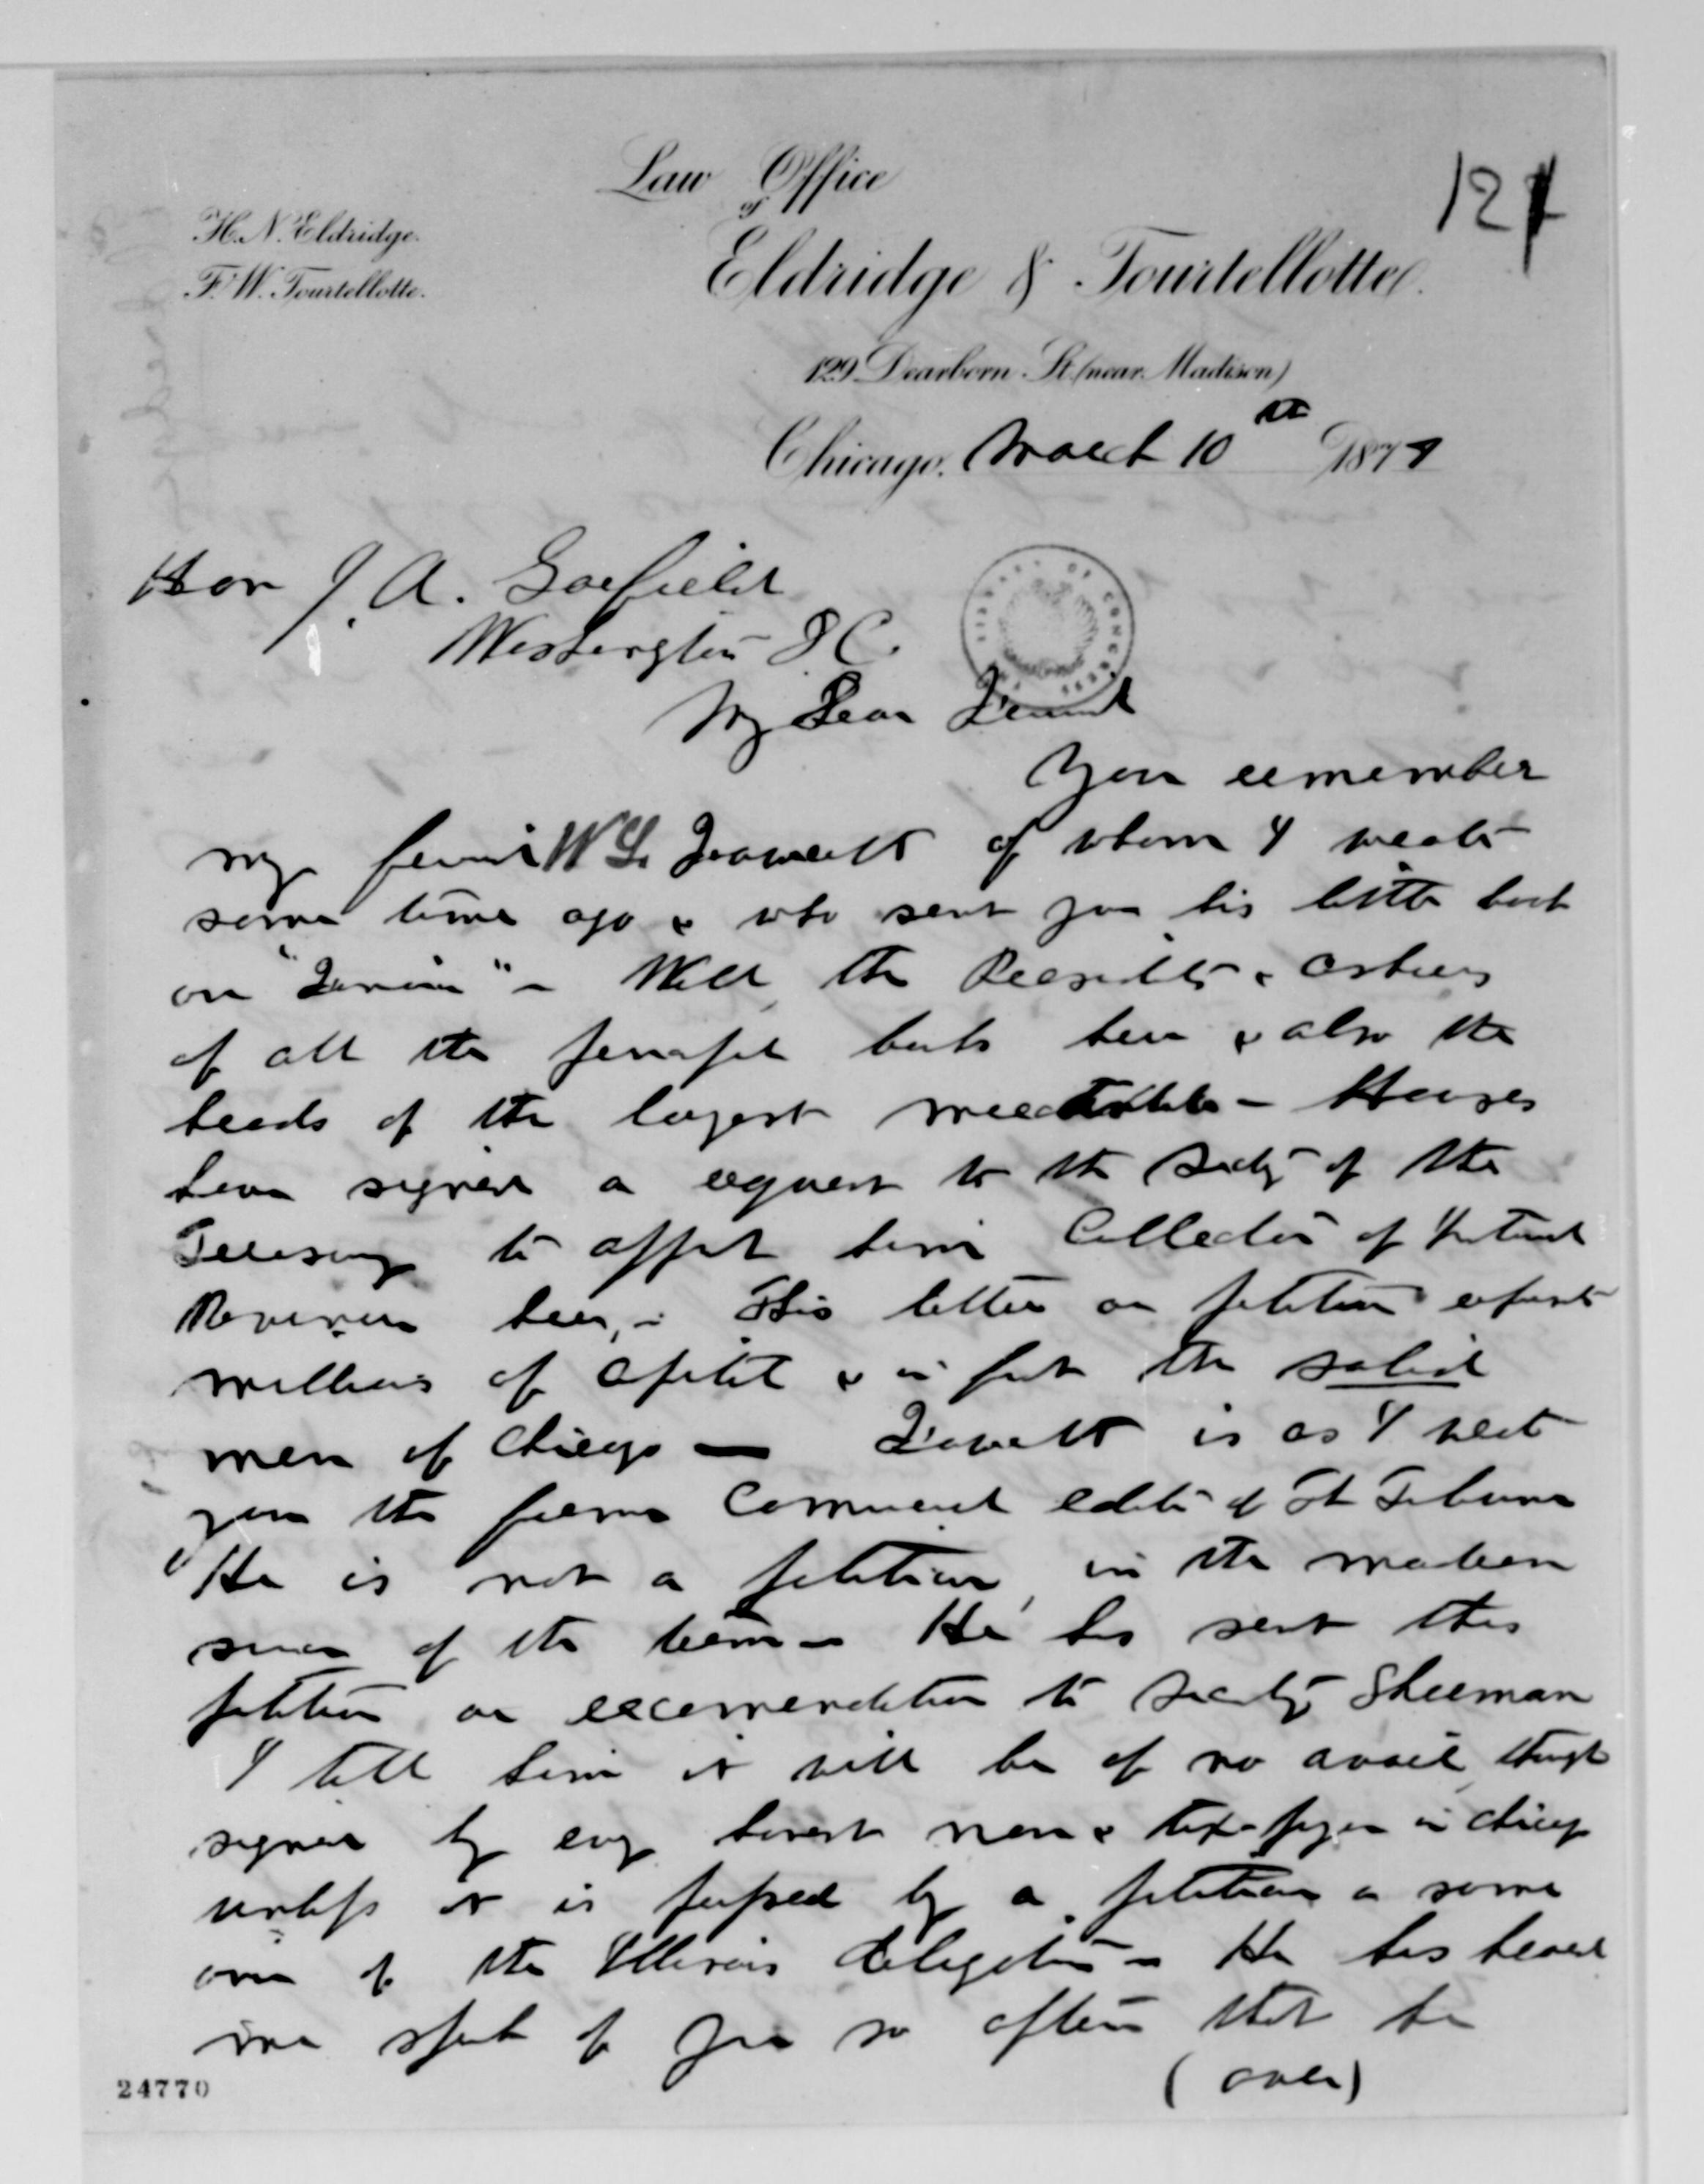 Law Office
of
H. N. Eldridge.
F. W. Tourtellotte.
Eldridge & Tourtellotte.
129 Dearborn St. (near Madison)
127
Chicago, March 10th 1879
Hon J. A. Garfield
Washington D C.
LIBRARY OF CONGRESS
My Dear Friend
You remember
my friend W L. Fawcett of whom I wrote
some time ago & who sent you his little book
on " " - Well the Presidents & Cashiers
of all the principal banks here & also the
heads of the largest mercantile - Houses
have signed a request to the Secty of the
Treasury to appoint him Collector of Internal
Revenue here, - This letter or petition represents
millions of capital & in fact the solid
men of Chicago — Fawcett is as I wrote
you the former Commercial editor of The Tribune
He is not a politician, in the modern
sense of the term - He has sent this
petition or reccomendation to Secty Sherman
I tell him it will be of no avail though
signed by every honest man & tax-payer in Chicago
unless it is pushed by a politician or some
one of the Illinois delegation - He has heard
me speak of you so often that he
(over)
24770